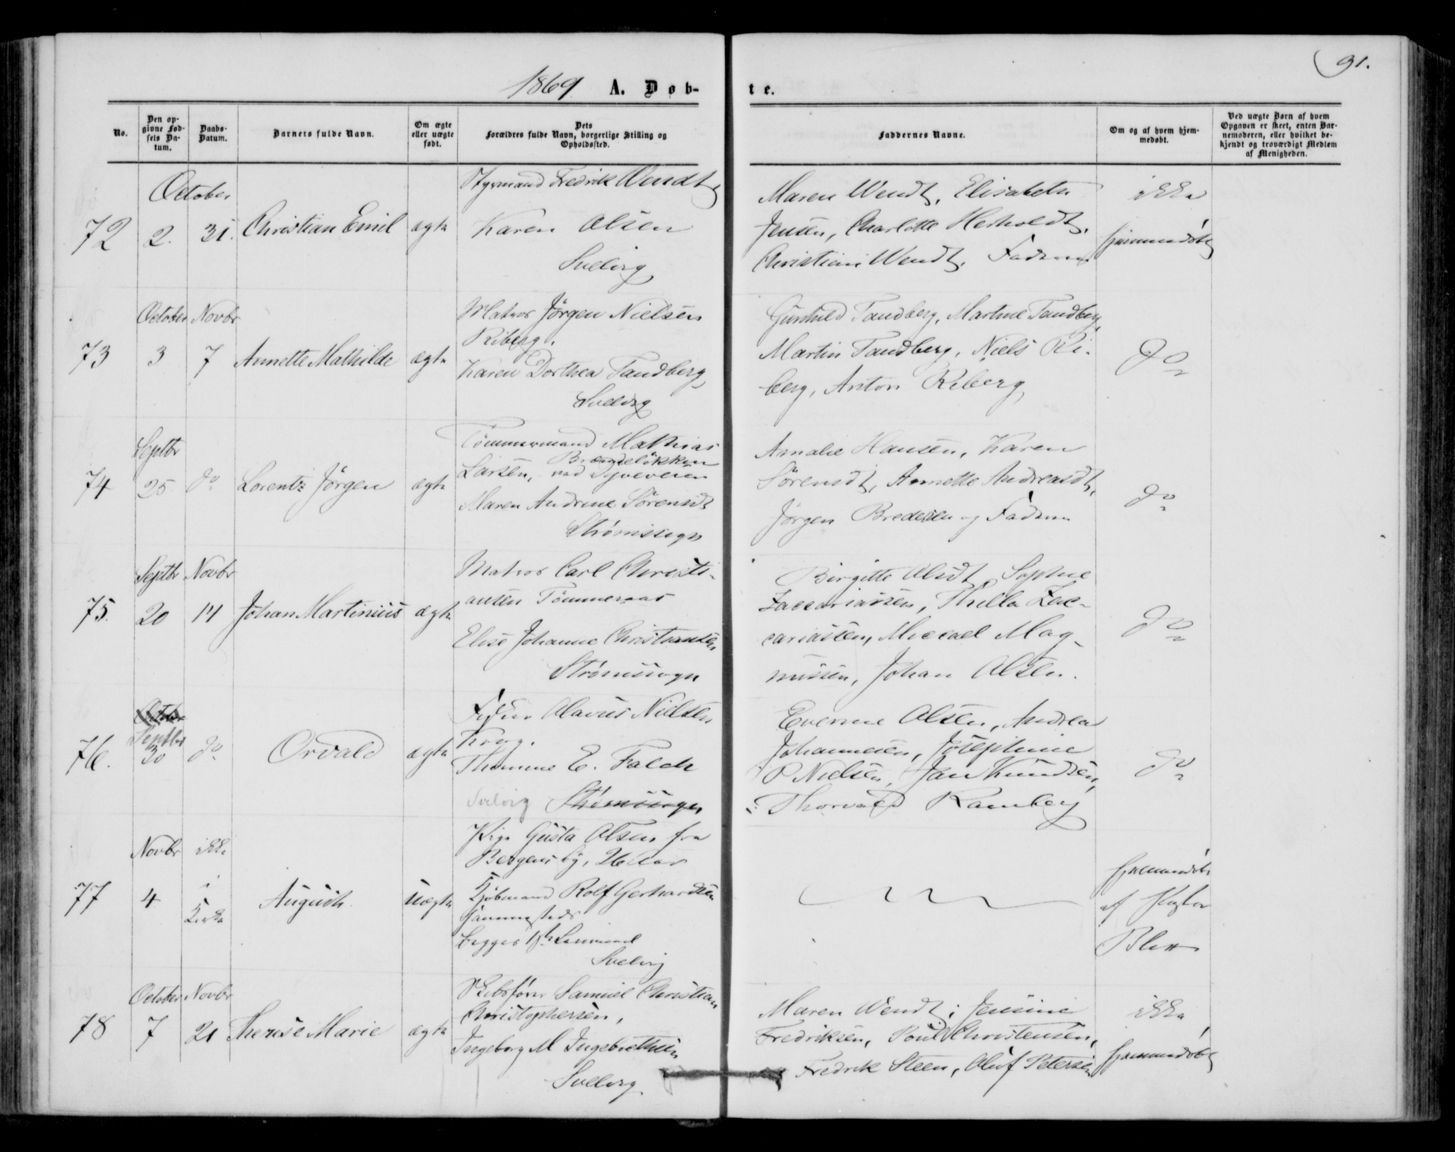 1869 A. Døb-
te.
91.
No.
Den op-
givne Fød-
sels Da-
tum.
Daabs-
Datum.
Barnets fulde Navn.
Om ægte
eller uægte
født.
Dets
Forældres fulde Navn, borgerlige Stilling og
Opholdssted.
Faddernes Navne.
Om og af hvem hjem-
medøbt.
Ved uægte Børn af hvem
Opgaven er skeet, enten Bar-
nemoderen, eller hvilket be-
kjendt og troværdigt Medlem
af Menigheden.
October
72 2. 31. Christian Emil ægte
Styrmand Fredrik Wendt
Karen Olsen
Svelvig
Maren Wendt, Elisabeth
Jensen, Charlotte Herholdt,
Christian Wendt, Faderen
ikke
hjemmedøbt
October Novbr
73 3 7 Annette Mathilde ægte
Matros Jørgen Nielsen
Riberg.
Karen Dorthea Tandberg
Svelvig
Gunhild Tandberg, Martine Tandberg
Martin Tandberg, Niels Ri-
berg, Anton Riberg
do
Septbr
74 25 do Lorentz Jørgen ægte
Tømmermand Mathias
Larsen, Brændeløkken
ved
Maren Andrine Sørensdt
Strømssogn
Amalie Hansen, Karen
Sørensdt, Annette Andreasdt,
Jørgen Bredesen og Faderen
do
Septbr Novbr
75. 20 14 Johan Martinius ægte
Matros Carl Christi-
ansen Tømmeraas
Elise Johanne Christiansen
Strømssogn
Birgitte Sophie
Zacariassen, Thilla Zac-
cariassen, Michael Mag-
nussen, Johan Olsen.
do
Septbr
76. 30 do Orvald ægte
Olavus Nielsen
Krog.
Thomine E. Falch
Svelvig Strømssogn
Evenine Olsen, Andrea
Johannesen, Josephine
P Nielsen, Jan Knudsen,
Thorvald Ramberg
do
Novbr ikke
77 4 i
Kirke
August uægte
Pige Gusta Olsen fra
Bergens by, 26 Aar
Kjøbmand Rolf Gerhardsen
begges 1ste Leiermaal
Svelvig
hjemmedøbt
af Pastor
October Novbr
78 7 21 Therese Marie ægte
Skibsfører Samuel Christian
Christophersen,
Ingeborg M Ingebrethsen
Svelvig
Maren Wendt, Jensine
Fredriksen, Poul Christensen,
Fredrik Steen, Oluf Petersen
ikke
hjemmedøbt